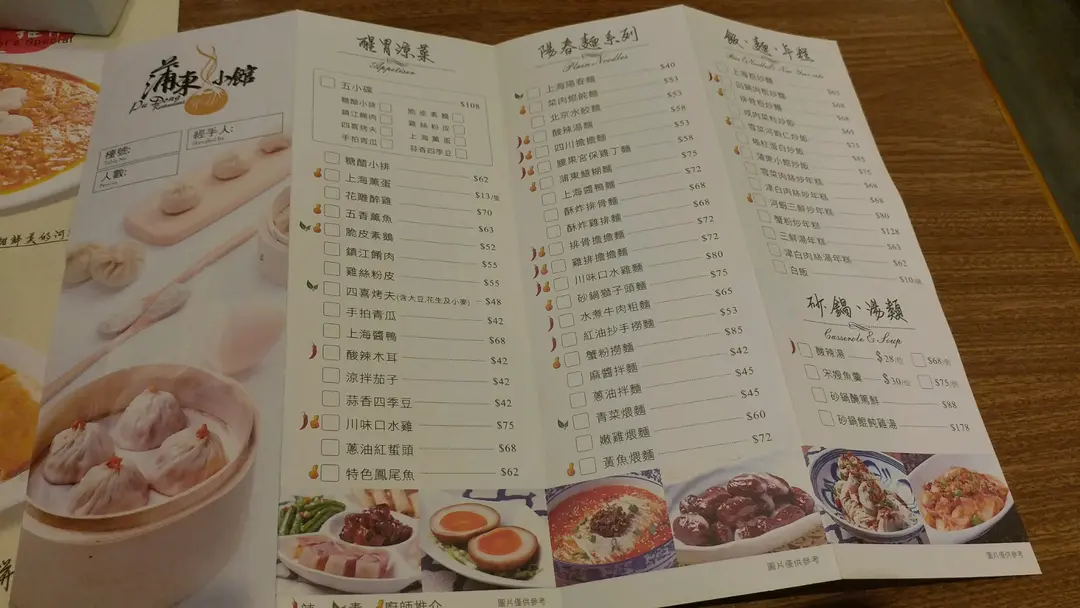 er's Special
蒲東小館
Pu Dong
樓號:
Table No.
經手人:
Handled by
人數:
Person
醒胃涼菜
Appetiser
五小碟 $108
糖醋小排
脆皮素鵝
鎮江餚肉
雞絲粉皮
四喜烤夫
上海薰蛋
手拍青瓜
蒜香四季豆
糖醋小排 $62
上海薰蛋 $13/隻
花雕醉雞 $70
五香薰魚 $63
脆皮素鵝 $52
鎮江餚肉 $55
雞絲粉皮 $55
四喜烤夫(含大豆,花生及小麥) $48
手拍青瓜 $42
上海醬鴨 $68
酸辣木耳 $42
涼拌茄子 $42
蒜香四季豆 $42
川味口水雞 $75
蔥油紅蜇頭 $68
特色鳳尾魚 $62
圖片僅供參考
辣 素 廚師推介
陽春麵系列
Plain Noodles
上海陽春麵 $40
菜肉餛飩麵 $53
北京水餃麵 $53
酸辣湯麵 $58
四川擔擔麵 $53
腰果宮保雞丁麵 $58
蒲東鱔糊麵 $75
上海醬鴨麵 $72
酥炸排骨麵 $68
酥炸雞排麵 $68
排骨擔擔麵 $72
雞排擔擔麵 $72
川味口水雞麵 $80
砂鍋獅子頭麵 $75
水煮牛肉粗麵 $65
紅油抄手撈麵 $53
蟹粉撈麵 $85
麻醬拌麵 $42
蔥油拌麵 $45
青菜煨麵 $45
嫩雞煨麵 $60
黃魚煨麵 $72
圖片僅供參考
飯·麵·年糕
上海粗炒麵 $65
回鍋肉粗炒麵 $68
排骨粗炒麵
咸肉菜粒炒飯 $65
雪菜河蝦仁炒飯
瑤柱蛋白炒飯
蒲東小館炒飯
雪菜肉絲炒年糕
津白肉絲炒年糕 $68
河蝦三鮮炒年糕 $80
蟹粉炒年糕 $128
三鮮湯年糕 $63
津白肉絲湯年糕 $62
白飯 $10/碗
砂·鍋·湯類
Casserole & Soup
酸辣湯 $28/位 $68/例
宋嫂魚羹 $30/位 $75/例
砂鍋醃篤鮮 $88
砂鍋餛飩雞湯 $178
圖片僅供參考